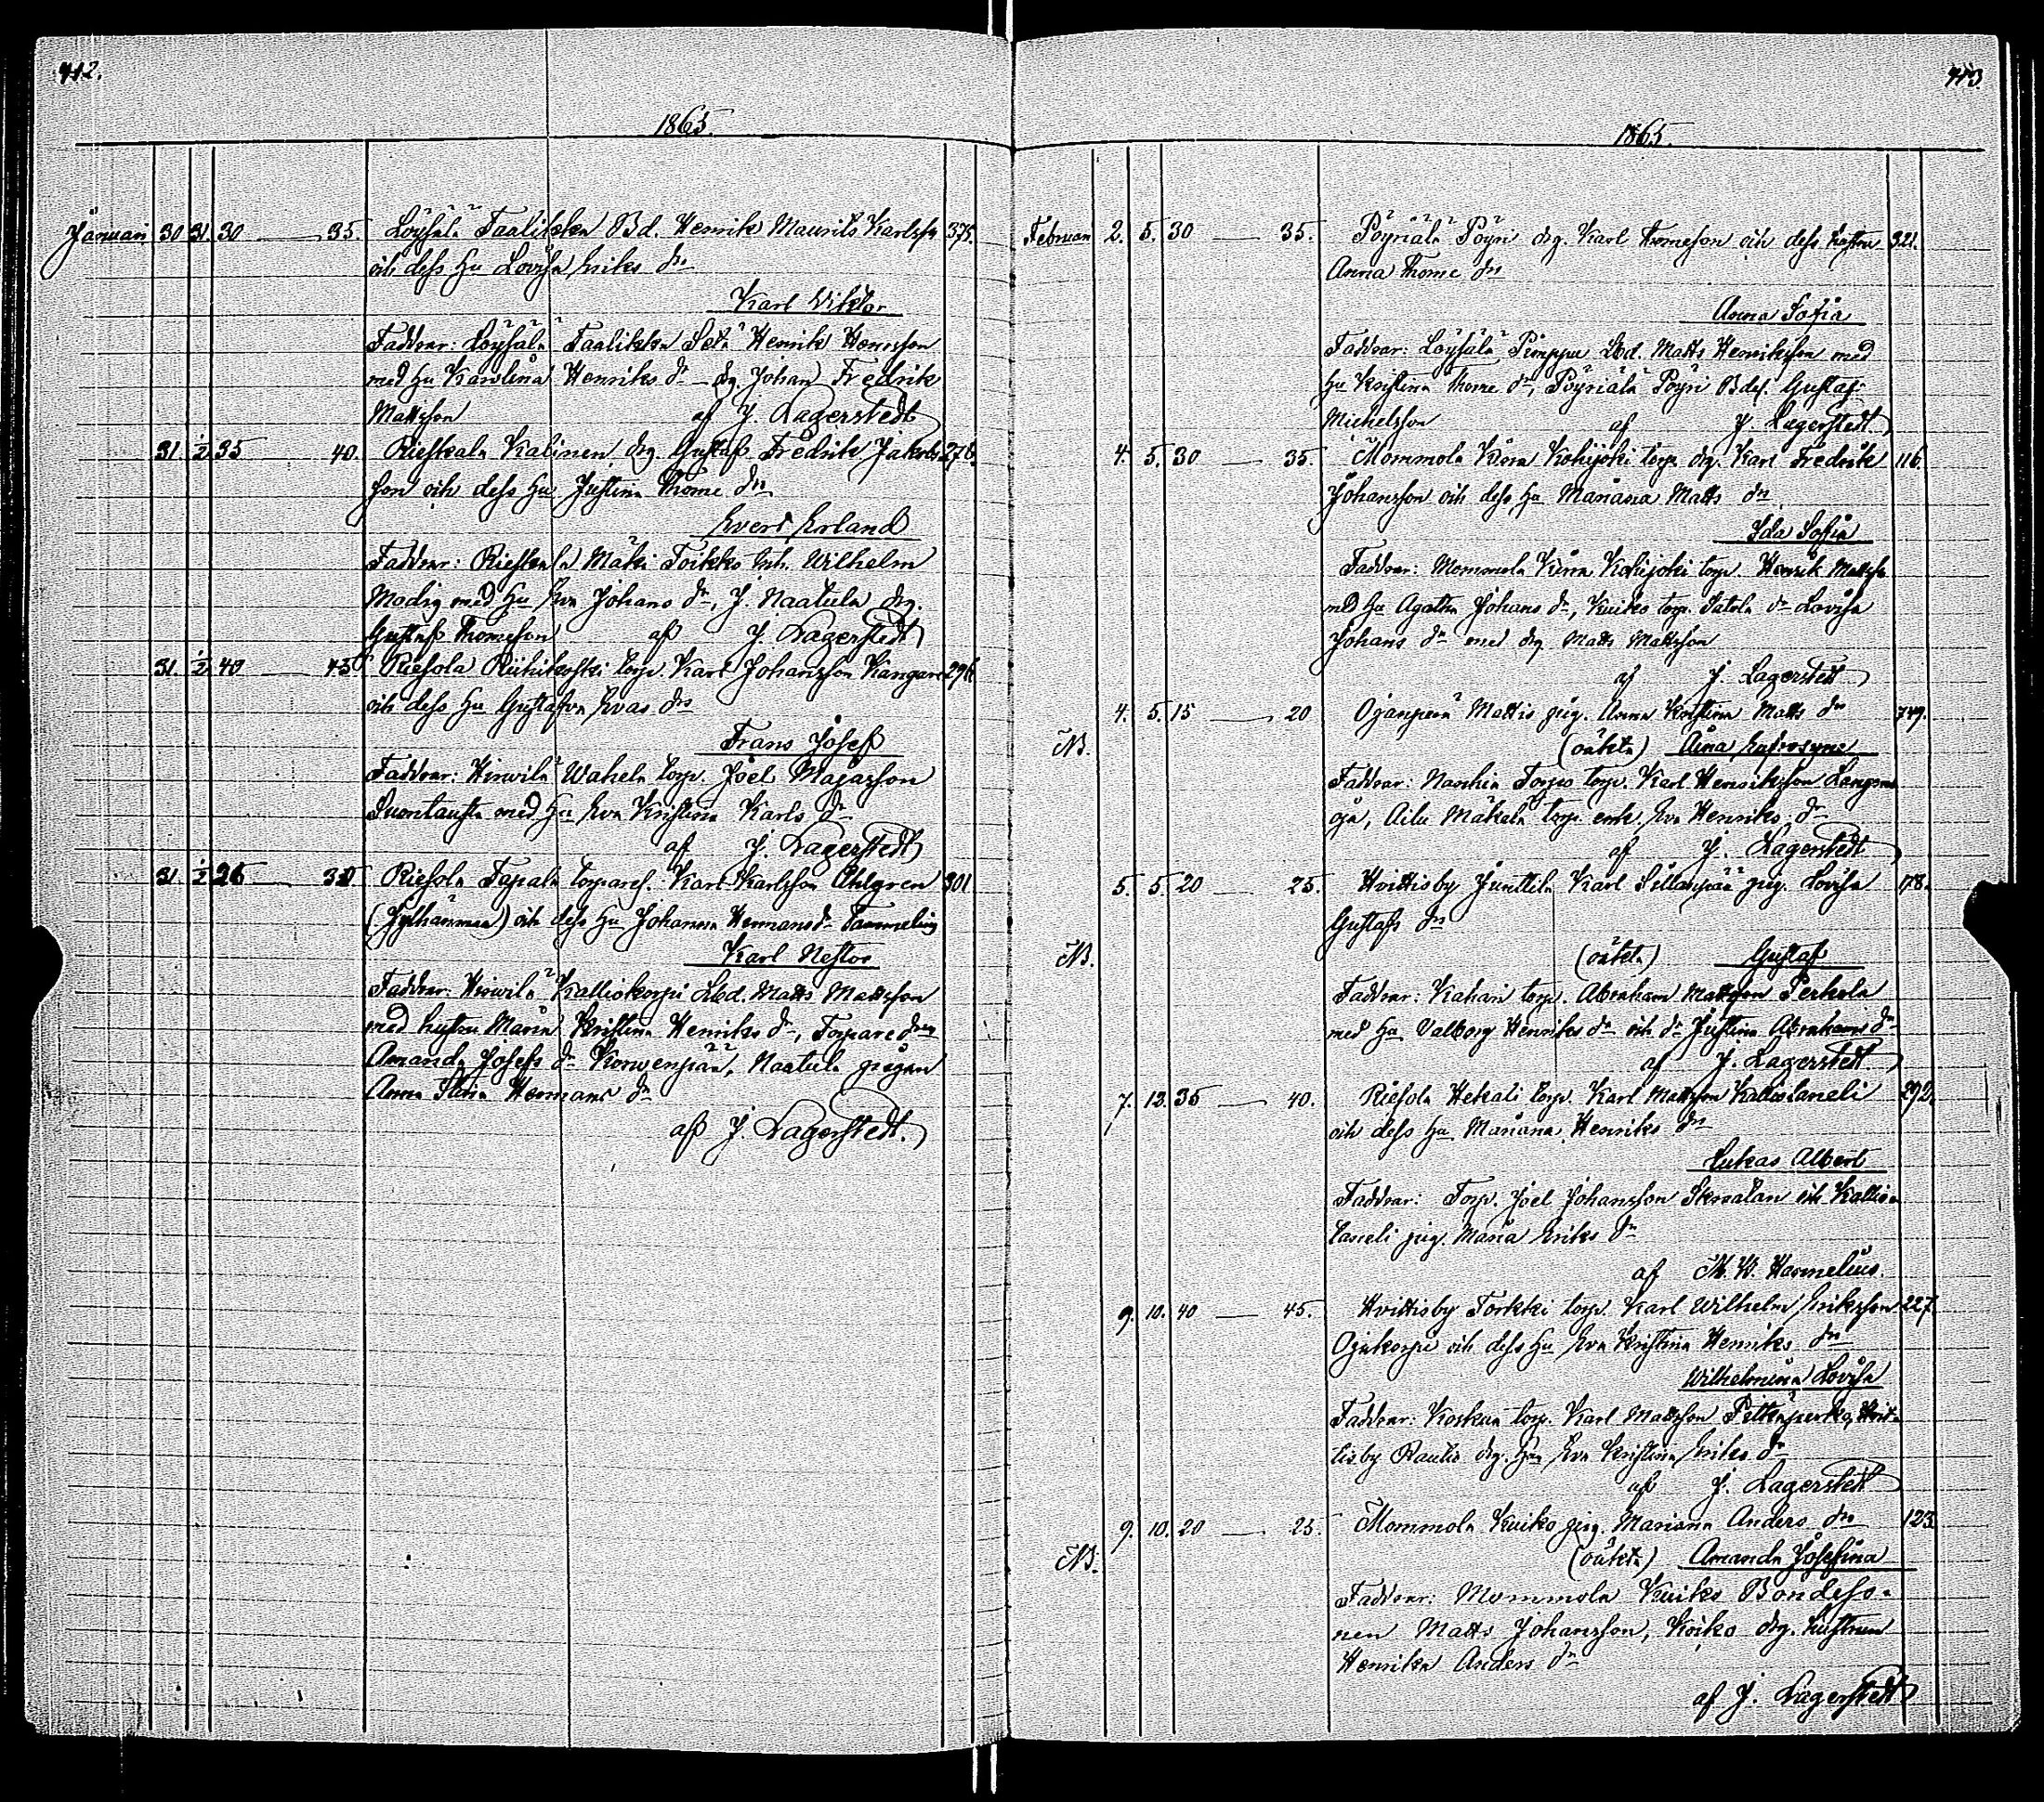 412.
1865.
Januari 30 31. 30 — 35. Löysälä Taalikka Bd. Henrik Maurits Karlsson 375.
och dess Hu Lovisa Eriks dr
Karl Viktor
Faddrar: Löysälä Taalikka Henrik Hennsson
med Hu Karolina Henriks dr drg. Johan Fredrik
Mattsson af J. Lagerstedt
31. 1/2 35 — 40. Rieskala Kalinen drg Gustaf Fredrik Jakobs 276.
son och dess Hu Justina Thome dr
Evert Erland
Faddrar: Rieskala Mäki Toikko Inh. Wilhelm
Modig med Hu Eva Johans dr, J. Naatula drg.
Gustaf Thomeson af J. Lagerstedt
31. 1/2 40 — 45 Riesola Riihikoski torp. Karl Johansson Kangare 296.
och dess Hu Gustafva Evas dr
Frans Josef
Faddrar: Hirwilä Wahela torp. Joel Majasson
Suontausta med Hu Eva Kristina Karls dr
af J. Lagerstedt
31. 1/2 26 — 30 Riesola Tapala torpares. Karl Karlsson Ahlgren 301
och dess Hu Johanna Hermans dr Tammelin
Karl Nestor
Faddrar: Hirwilä Kalliokorpi Lbd. Matts Mattsson
med hustru Maria Kristina Henriks dr, Torpare dren
Amanda Josefs dr Korwenpää, Naatula pigan
Anna Stina Hermans dr
af J. Lagerstedt.
413.
1865.
Februari 2. 5. 30 — 35. Pöyriälä Pöyri drg. Karl Thomeson och dess hustru 321.
Anna Thome dr
Anna Sofia
Faddrar: Löysälä Pimppu Lbd. Matts Henriksson med
Hu Kristina Thome dr, Pöyriälä Pöyri Bdes. Gustaf
Michelsson af J. Lagerstedt
4. 5. 30 — 35. Mommola Kiira Kohijoki torp. drg. Karl Fredrik 116.
Johansson och dess Hu Mariana Matts dr
Ida Sofia
Faddrar: Mommola Kiira Kohijoki torp. Henrik Mattsson
md Hu Agatha Johans dr, Kuiko torp. Satola dr Lovisa
Johans dr med drg Matts Mattsson
af J. Lagerstedt
4. 5. 15 — 20 Ojanperä Mattis pig. Anna Kristina Matts dr 749.
NB. (oäkta) Aina Eufrosyne
Faddrar: Naschia Torpo torp. Karl Henriksson Langen
oja, Aila Mäkelä torp. enk. Eva Henriks dr
af J. Lagerstedt
5. 5. 20 — 25. Hvittisby Junttila Karl Sillanpää pig. Lovisa 178.
Gustafs dr
NB. (oäkta) Gustaf
Faddrar: Kahari torp. Abraham Mattsson Perkola
med Hu Valborg Henriks dr och dr Justina Abrahams dr
af J. Lagerstedt
7. 12. 35 — 40. Riesola Hekali torp. Karl Mattsson Kalliotaneli 292.
och dess Hu Mariana Henriks dr
Lukas Albert
Faddrar: Torp. Joel Johansson och Kallio
taneli pig. Maria Eriks dr
af M. W. Harmelius.
9. 10. 40 — 45. Hvittisby Torkki torp. Karl Wilhelm Eriksson 227.
Ojakorpi och dess Hu Eva Kristina Henriks dr
Wilhelmina Lovisa
Faddrar: Koskua torp. Karl Mattsson Pitkäperko, Hvit-
tisby Rautio drg. Hu Eva Kristina Eriks dr
af J. Lagerstedt
9. 10. 20 — 25. Mommola Kuiko pig. Mariana Anders dr 123.
NB. (oäkta) Amanda Josefina
Faddrar: Mommola Kuiko Bondeso-
nen Matts Johansson, Koiko drg. hustrun
Henrika Anders dr
af J. Lagerstedt